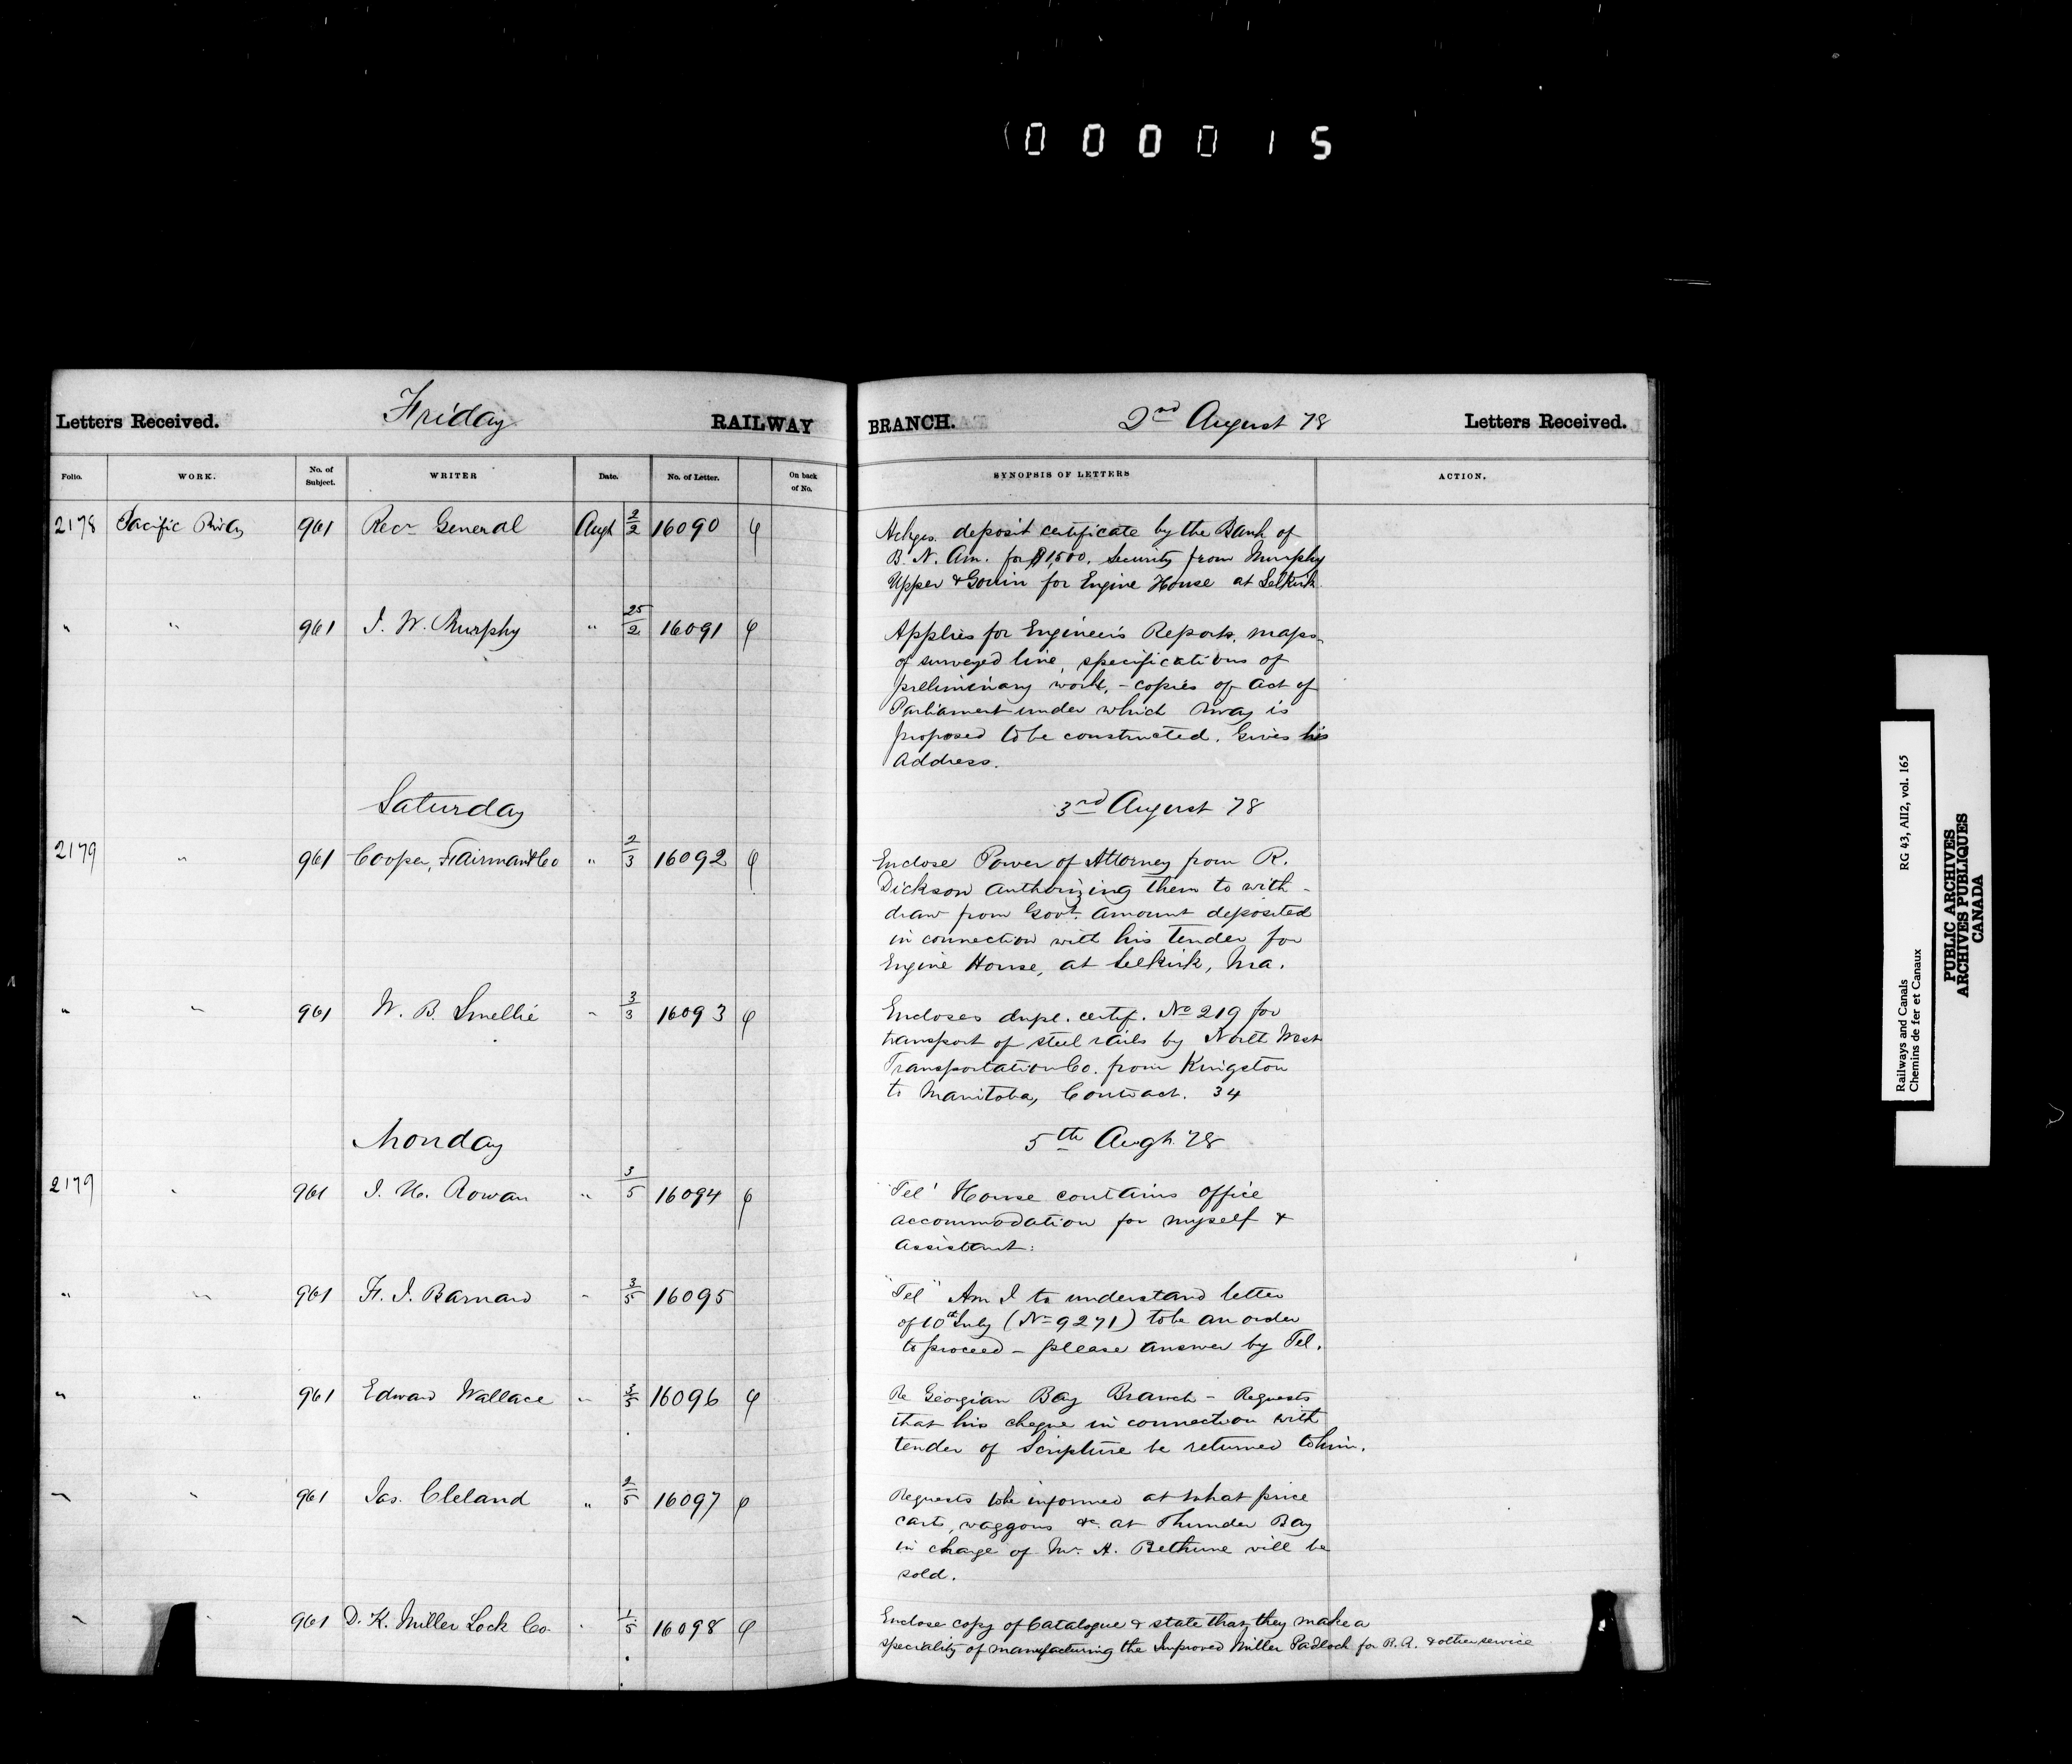 000015
Letters Received. Friday RAILWAY BRANCH. 2nd August 78 Letters Received.
Folio. WORK. No. of Subject. WRITER Date. No. of Letter. On back of No. SYNOPSIS OF LETTERS ACTION.
2178 Pacific Rway 961 Recr General Augt 2/2 16090
Ackges. deposit certificate by the Bank of
B. N. Am. for $1,500. Security from Murphy
Upper & Gouin for Engine House at Selkirk
" " 961 J. W. Murphy " 25/2 16091
Applies for Engineer's Reports, maps
of surveyed line, specifications of
preliminary work, - copies of Act of
Parliament under which Rway is
proposed to be constructed. Gives his
Address.
Saturday 3rd August 78
2179 " 961 Cooper, Fairman & Co " 2/3 16092
Enclose Power of Attorney from R.
Dickson Authorizing them to with-
draw from Govt. amount deposited
in connection with his tender for
Engine House, at Selkirk, Ma.
" " 961 W. B. Smellie " 3/3 16093
Encloses dupl. certif. No 219 for
transport of steel rails by North West
Transportation Co. from Kingston
to Manitoba, Contract. 34
Monday 5th Augt. 78
2179 " 961 J. H. Rowan " 3/5 16094
"Tel" House contains office
accommodation for myself &
assistant.
" " 961 F. J. Barnard " 3/5 16095
"Tel" Am I to understand letter
of 10th July (No 9271) to be an order
to proceed - please answer by Tel.
" " 961 Edward Wallace " 3/5 16096
Re Georgian Bay Branch - Requests
that his cheque in connection with
tender of Scripture be returned to him.
" " 961 Jas. Cleland " 2/5 16097
Requests to be informed at what price
carts, waggons &c. at Thunder Bay
in charge of Mr. A. Bethune will be
sold.
" " 961 D. K. Miller Lock Co. " 1/5 16098
Enclose copy of Catalogue & state that they make a
speciality of manufacturing the Improved Miller Padlock for R.R. & other service
Railways and Canals RG 43, AII2, vol. 165
Chemins de fer et Canaux
PUBLIC ARCHIVES
ARCHIVES PUBLIQUES
CANADA